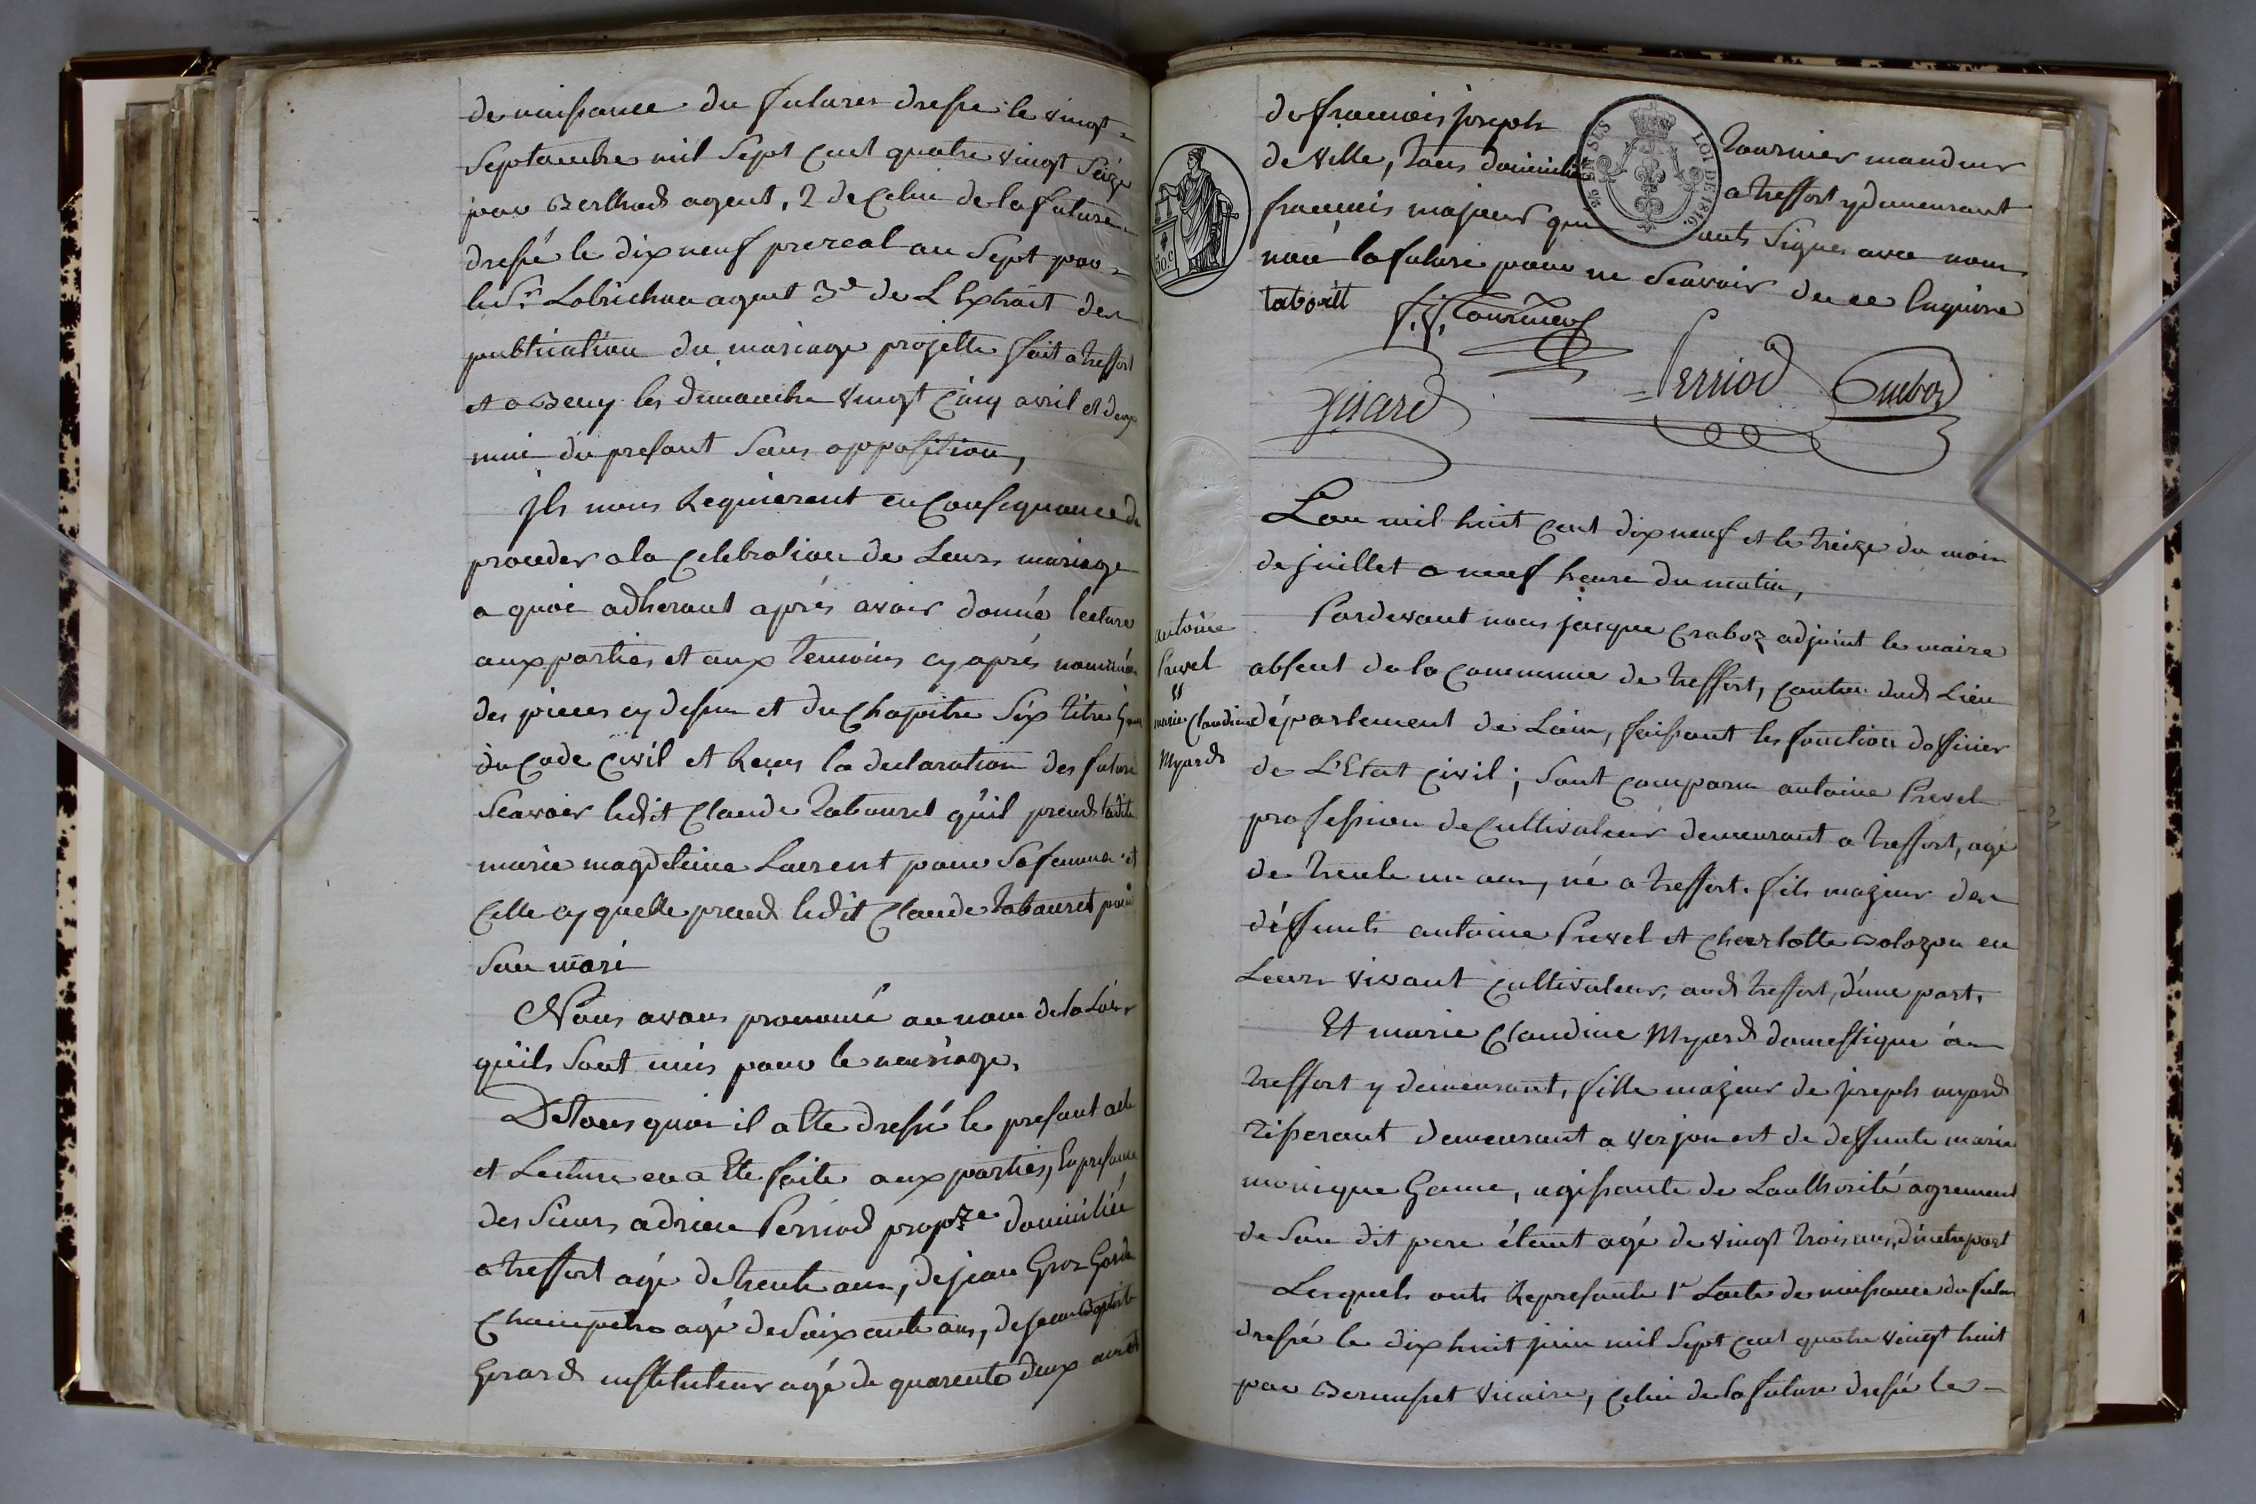 de naissance du futures dressé le vingt
Septembre mil Sept Cent quatre vingt Seize
par Berthod agent, 2 de Celui de la future
dressé le dix neuf prereal an Sept par
le Sr. Lobrichon agent 3e de L Extrait des
publication du mariage projetté fait a treffort
et a Beny les dimanche Vingt Cinq avril et deux
mai du presant Sans opposition,
Ils nous Requierent en Consequance de
proceder a la Celebration de Leurs mariage
a quoi adherant aprés avoir donné lecture
aux parties et aux temoins cy aprés nommés
des pieces cy dessus et du Chapitre Six titre
du Code Civil et Reçus la declaration des futurs
Scavoir ledit Claude Tabouret qu'il prend ladite
marie magdeleine Laurent pour Sa femme et
Celle cy quelle prend ledit Claude Tabouret pour
Son mari
Nous avons prononcé au nom de la Loi
qu'ils Sont unis pour le mariage.
De tous quoi il a Eté dressé le presant acte
et Lecture en a Eté faite aux parties, En presance
des Sieurs adrien Perriod propre domicilié
a treffort agé de trente ans, de jean Groz Garde
Champetre agé de Soixante ans, de jean Baptiste
Girard instituteur agé de quarente deux ans et
de francois joseph Tournier mandeur
de Ville, tous domicilié a treffort y demeurant
francais majeurs qui onts Signés avec nous
non la future pour ne Scavoir de ce Enquise
tabourt f. J. Tournier
Girard Perriod Craboz
96 EN SUS
LOI DE 1816.
50.c
antoine
Prevel
&
marie Claudine
Myard
L'an mil huit Cent dix neuf et le treize du mois
de juillet a neuf heure du matin,
Pardevant nous jacque Craboz adjoint le maire
absent de la Commune de treffort, Canton dud Lieu
département de Lain, faissant les fonction doffinier
de L'Etat Civil; Sont Comparu antoine Prevel
profession de Cultivateur demeurant a treffort, agé
de trente un ans, né a treffort fils majeur des
déffunts antoine Prevel et Charlotte Bolozon en
Leurs vivant Cultivateur, aud treffort, d'une part.
Et marie Claudine Myard domestique á
treffort y demeurant, fille majeur de joseph myard
tisserant demeurant a Verjon et de deffunte marie
monique Game, agissante de Lauthorité agrement
de Son dit pere étant agé de vingt trois ans, d'autre part
Lesquels onts Represanté 1r Lacte de naissance du futur
dressé le dix huit juin mil Sept Cent quatre vingt huit
par vicaire, Celui de la future dressé le